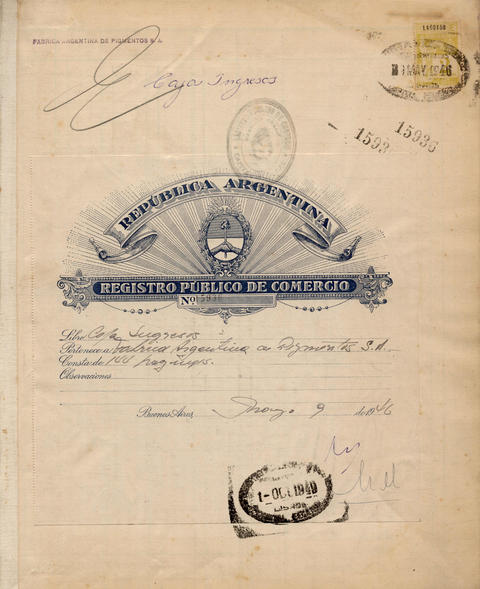 FABRICA ARGENTINA DE PIGMENTOS S. A.
Caja Ingresos
MAY 1946
15936
1593
REPÚBLICA ARGENTINA
REGISTRO PÚBLICO DE COMERCIO
Nº 5936
Libro Caja Ingresos
Pertenece a Fabrica Argentina de Pigmentos S.A.
Consta de 144 páginas.
Observaciones
Buenos Aires, Mayo 9 de 1946
1-OCT 1949
LIBROS